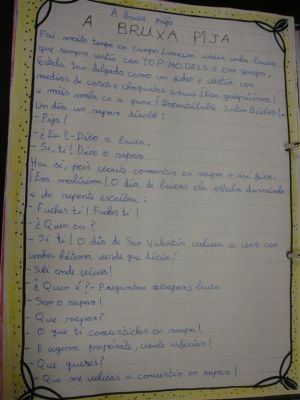 A bruxa pija
A BRUXA PIJA
Fai moito tempo en Campo Lameiro vivía unha bruxa
que sempre vestía con TOP MODELS e era guapa.
Estaba tan delgada como un fideo e vestía con
medias de cores e chaquetas
e máis mala ca a fame! Encantáballe Justin Bieber!
Un día un rapaz díxolle:
- Pija!
- ¿Eu? - Dixo a bruxa.
- Si, ti! Dixo o rapaz.
Hai si, pois voute convertir en sapo e así fixo.
¡Era malísima! O día de bruxas ela estaba durmindo
e de repente escoitou:
- Fuches ti! Fuches ti!
- ¿Quen eu?
- Si ti! O día de San Valentín
unha que decía:
- Sei onde vives!
- ¿Quen é? - Preguntou a bruxa
- Son o rapaz!
- Que rapaz?
- O que ti convertiches en sapo!
- E agora prepárate, voute
- Que queres?
- Que me volvas a convertir en rapaz!